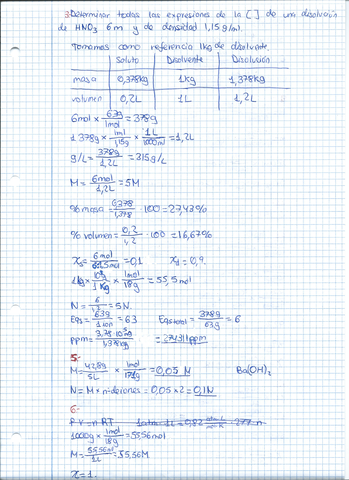 3. Determinar todas las expresiones de la [ ] de una disolución
de HNO3 6m y de densidad 1,15 g/ml.
Tomamos como referencia 1kg de disolvente.
Soluto Disolvente Disolución
masa 0,378kg 1kg 1,378kg
volumen 0,2L 1L 1,2L
6mol × 63g/1mol = 378g
1378g × 1ml/1,15g × 1L/1000ml = 1,2L
g/L = 378g/1,2L = 315g/L
M = 6mol/1,2L = 5M
% masa = 0,378/1,378 · 100 = 27,43%
% volumen = 0,2/1,2 · 100 = 16,67%
Xs = 6mol/61,5mol = 0,1 Xd = 0,9.
1kg × 10³g/1kg × 1mol/18g = 55,5mol
N = 6/1,2 = 5N.
Eqs = 63g/1 ion = 63 Eqs total = 378g/63g = 6
ppm = /1,378kg = 274311ppm
5.-
M = 42,8g/5L × 1mol/171g = 0,05 M Ba(OH)2
N = M × nº iones = 0,05 × 2 = 0,1N
6-
P V = n RT
1000g × 1mol/18g = 55,56mol
M = 55,56mol/1L = 55,56M
X = 1.